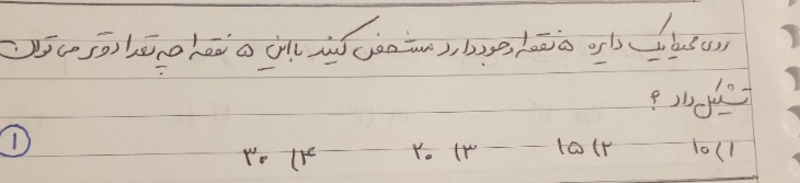 روی محیط یک دایره ۵ نقطه وجود دارد مشخص کنید با این ۵ نقطه چه تعداد وتر می توان
تشکیل داد ؟
۱) ۱۰ ۲) ۱۵ ۳) ۲۰ ۴) ۳۰
۱